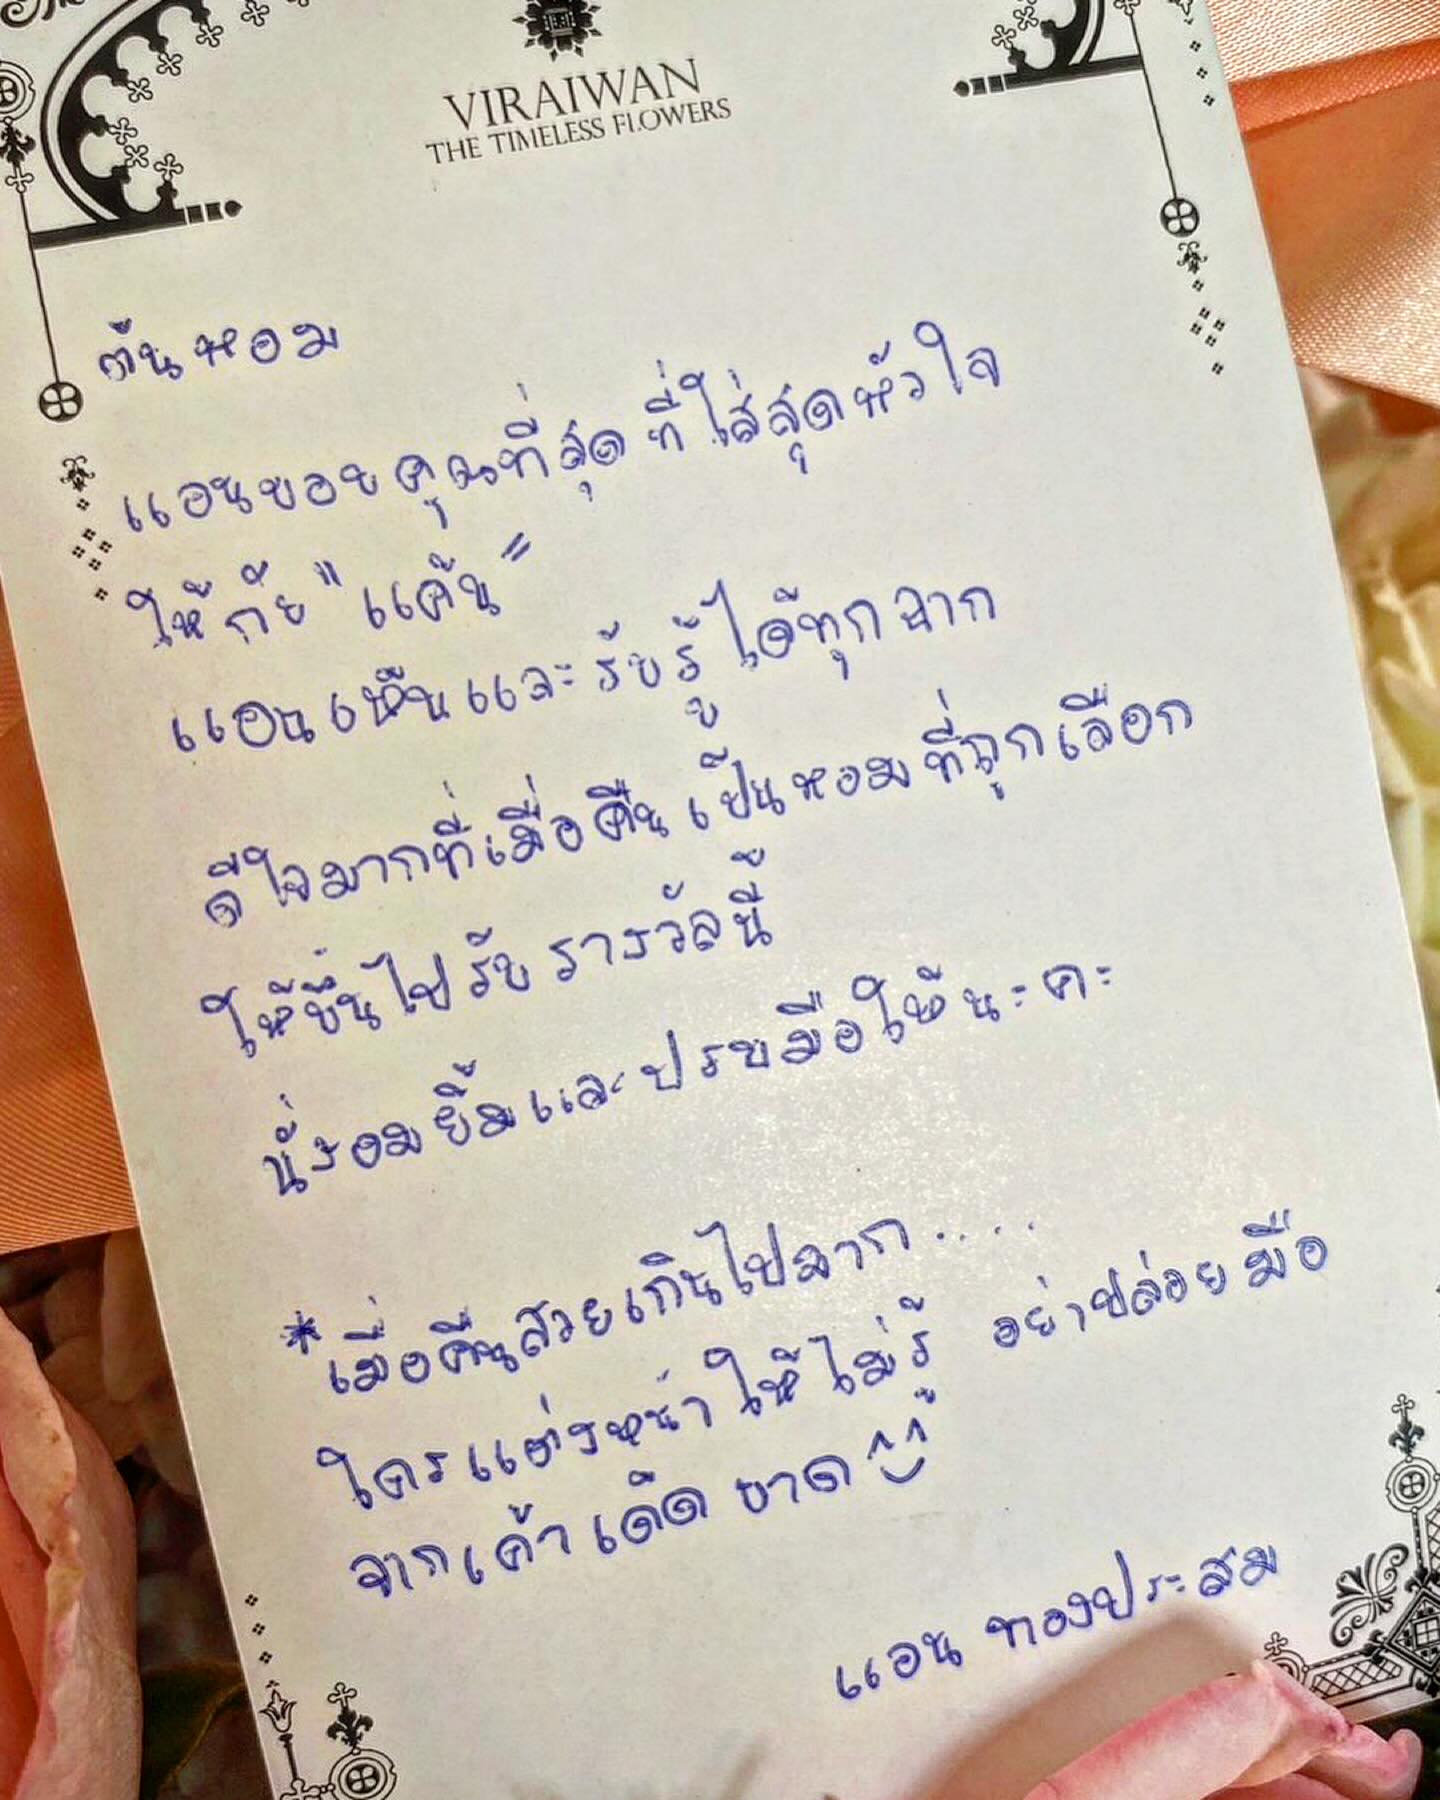 VIRAIWAN
THE TIMELESS FLOWERS
ต้นหอม
แอนขอบคุณที่สุด ที่ใส่สุดหัวใจ
ให้กับ "แค้น"
แอนเห็นและรับรู้ได้ทุกฉาก
ดีใจมากที่เมื่อคืนเป็นหอมที่ถูกเลือก
ให้ขึ้นไปรับรางวัลนี้
นั่งอมยิ้มและปรบมือให้นะคะ
*เมื่อคืนสวยเกินไปมาก....
ใครแต่งหน้าให้ไม่รู้ อย่าปล่อยมือ
จากเค้าเด็ดขาด
แอน ทองประสม